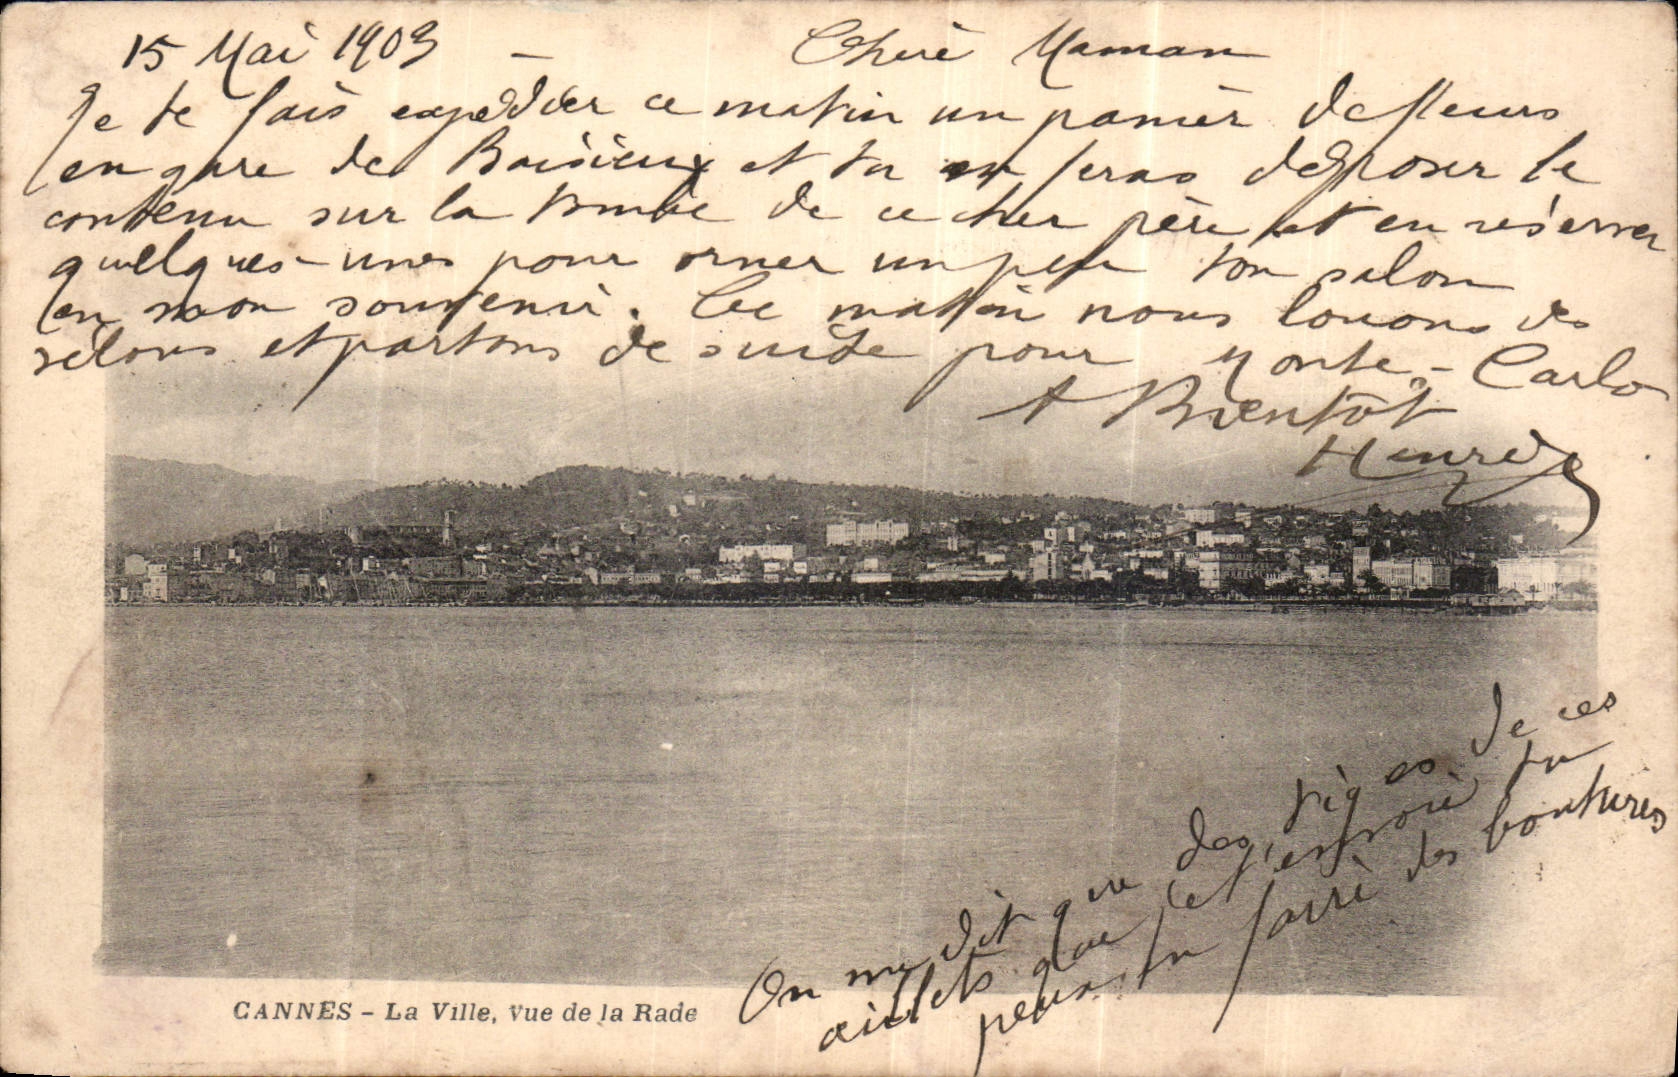 15 Mai 1903 - Cheré Maman
Je te fais expédier ce matin un panier de fleurs
en gare de Baisieux et tu en feras déposer le
contenu sur la tombe de ce cher père et en réserver
quelques-unes pour orner un peu ton salon
en mon souvenir. Ce matin nous louons des
vélons et partons de suite pour Monte-Carlo
A Bientôt
Henri
On me dit que des tiges de ces
œillets que je t'envoie tu
peux tu faire des boutures
CANNES - La Ville, vue de la Rade